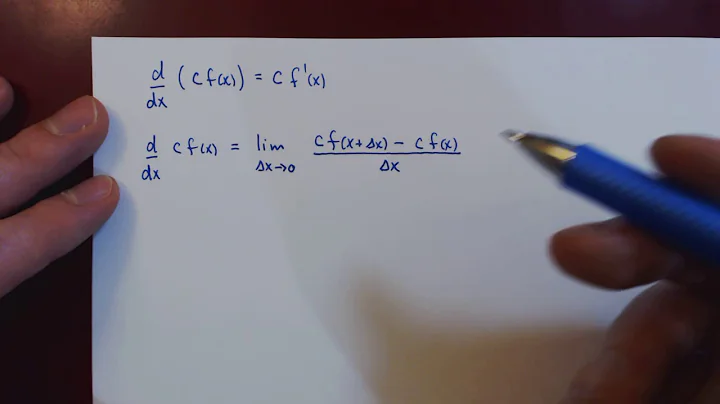 d/dx (c f(x)) = c f'(x)
d/dx c f(x) = lim Δx→0 (c f(x + Δx) − c f(x)) / Δx